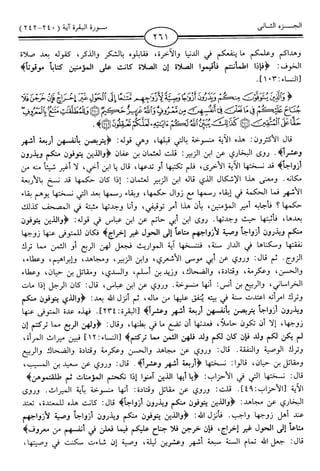 الجـــزء الثـــاني
٢٦١
سـورة البقرة آية (٢٤٠ - ٢٤٢)
وهداكم وعلمكم ما ينفعكم في الدنيا والآخرة، فقابلوه بالشكر والذكر، كقوله بعد صلاة
الخوف: ﴿فإذا اطمأننتم فأقيموا الصلاة إن الصلاة كانت على المؤمنين كتاباً موقوتاً﴾
[النساء: ١٠٣].
وَالَّذِينَ يُتَوَفَّوْنَ مِنكُمْ وَيَذَرُونَ أَزْوَاجًا وَصِيَّةً لِّأَزْوَاجِهِم مَّتَاعًا إِلَى الْحَوْلِ غَيْرَ إِخْرَاجٍ فَإِنْ خَرَجْنَ فَلَا
جُنَاحَ عَلَيْكُمْ فِي مَا فَعَلْنَ فِي أَنفُسِهِنَّ مِن مَّعْرُوفٍ وَاللَّهُ عَزِيزٌ حَكِيمٌ وَلِلْمُطَلَّقَاتِ مَتَاعٌ بِالْمَعْرُوفِ
حَقًّا عَلَى الْمُتَّقِينَ كَذَٰلِكَ يُبَيِّنُ اللَّهُ لَكُمْ آيَاتِهِ لَعَلَّكُمْ تَعْقِلُونَ
قال الأكثرون: هذه الآية منسوخة بالتي قبلها، وهي قوله: ﴿يتربصن بأنفسهن أربعة أشهر
وعشراً﴾. روى البخاري عن ابن الزبير: قلت لعثمان بن عفان ﴿والذين يتوفون منكم ويذرون
أزواجاً﴾ قد نسختها الآية الأخرى، فلم تكتبها أو تدعها، قال يا ابن أخي، لا أغير شيئاً منه من
مكانه. ومعنى هذا الإشكال الذي قاله ابن الزبير لعثمان: إذا كان حكمها قد نسخ بالأربعة
الأشهر فما الحكمة في إبقاء رسمها مع زوال حكمها، وبقاء رسمها بعد التي نسختها يوهم بقاء
حكمها؟ فأجابه أمير المؤمنين، بأن هذا أمر توقيفي، وأنا وجدتها مثبتة في المصحف كذلك
بعدها، فأثبتها حيث وجدتها. روى ابن أبي حاتم عن ابن عباس في قوله: ﴿والذين يتوفون
منكم ويذرون أزواجاً وصية لأزواجهم متاعاً إلى الحول غير إخراج﴾ فكان للمتوفى عنها زوجها
نفقتها وسكناها في الدار سنة، فنسختها آية المواريث فجعل لهن الربع أو الثمن مما ترك
الزوج. ثم قال: وروي عن أبي موسى الأشعري، وابن الزبير، ومجاهد، وإبراهيم، وعطاء،
والحسن، وعكرمة، وقتادة، والضحاك، وزيد بن أسلم، والسدي، ومقاتل بن حيان، وعطاء
الخراساني، والربيع بن أنس: أنها منسوخة. وروي عن ابن عباس، قال: كان الرجل إذا مات
وترك امرأته اعتدت سنة في بيته يُنفَق عليها من ماله، ثم أنزل الله بعد: ﴿والذين يتوفون منكم
ويذرون أزواجاً يتربصن بأنفسهن أربعة أشهر وعشراً﴾ [البقرة: ٢٣٤]. فهذه عدة المتوفى عنها
زوجها، إلا أن تكون حاملاً، فعدتها أن تضع ما في بطنها، وقال: ﴿ولهن الربع مما تركتم إن
لم يكن لكم ولد فإن كان لكم ولد فلهن الثمن مما تركتم﴾ [النساء: ١٢] فبين ميراث المرأة،
وترك الوصية والنفقة. قال: وروي عن مجاهد والحسن وعكرمة وقتادة والضحاك والربيع
ومقاتل بن حيان، قالوا: نسختها ﴿أربعة أشهر وعشراً﴾. قال: وروي عن سعيد بن المسيب،
قال: نسختها التي في الأحزاب: ﴿يا أيها الذين آمنوا إذا نكحتم المؤمنات ثم طلقتموهن﴾
الآية [الأحزاب: ٤٩]. قلت: وروي عن مقاتل وقتادة: أنها منسوخة بآية الميراث. وروى
البخاري عن مجاهد: ﴿والذين يتوفون منكم ويذرون أزواجاً﴾ قال: كانت هذه للمعتدة، تعتد
عند أهل زوجها واجب. فأنزل الله: ﴿والذين يتوفون منكم ويذرون أزواجاً وصية لأزواجهم
متاعاً إلى الحول غير إخراج، فإن خرجن فلا جناح عليكم فيما فعلن في أنفسهن من معروف﴾
قال: جعل الله تمام السنة سبعة أشهر وعشرين ليلة، وصية إن شاءت سكنت في وصيتها،